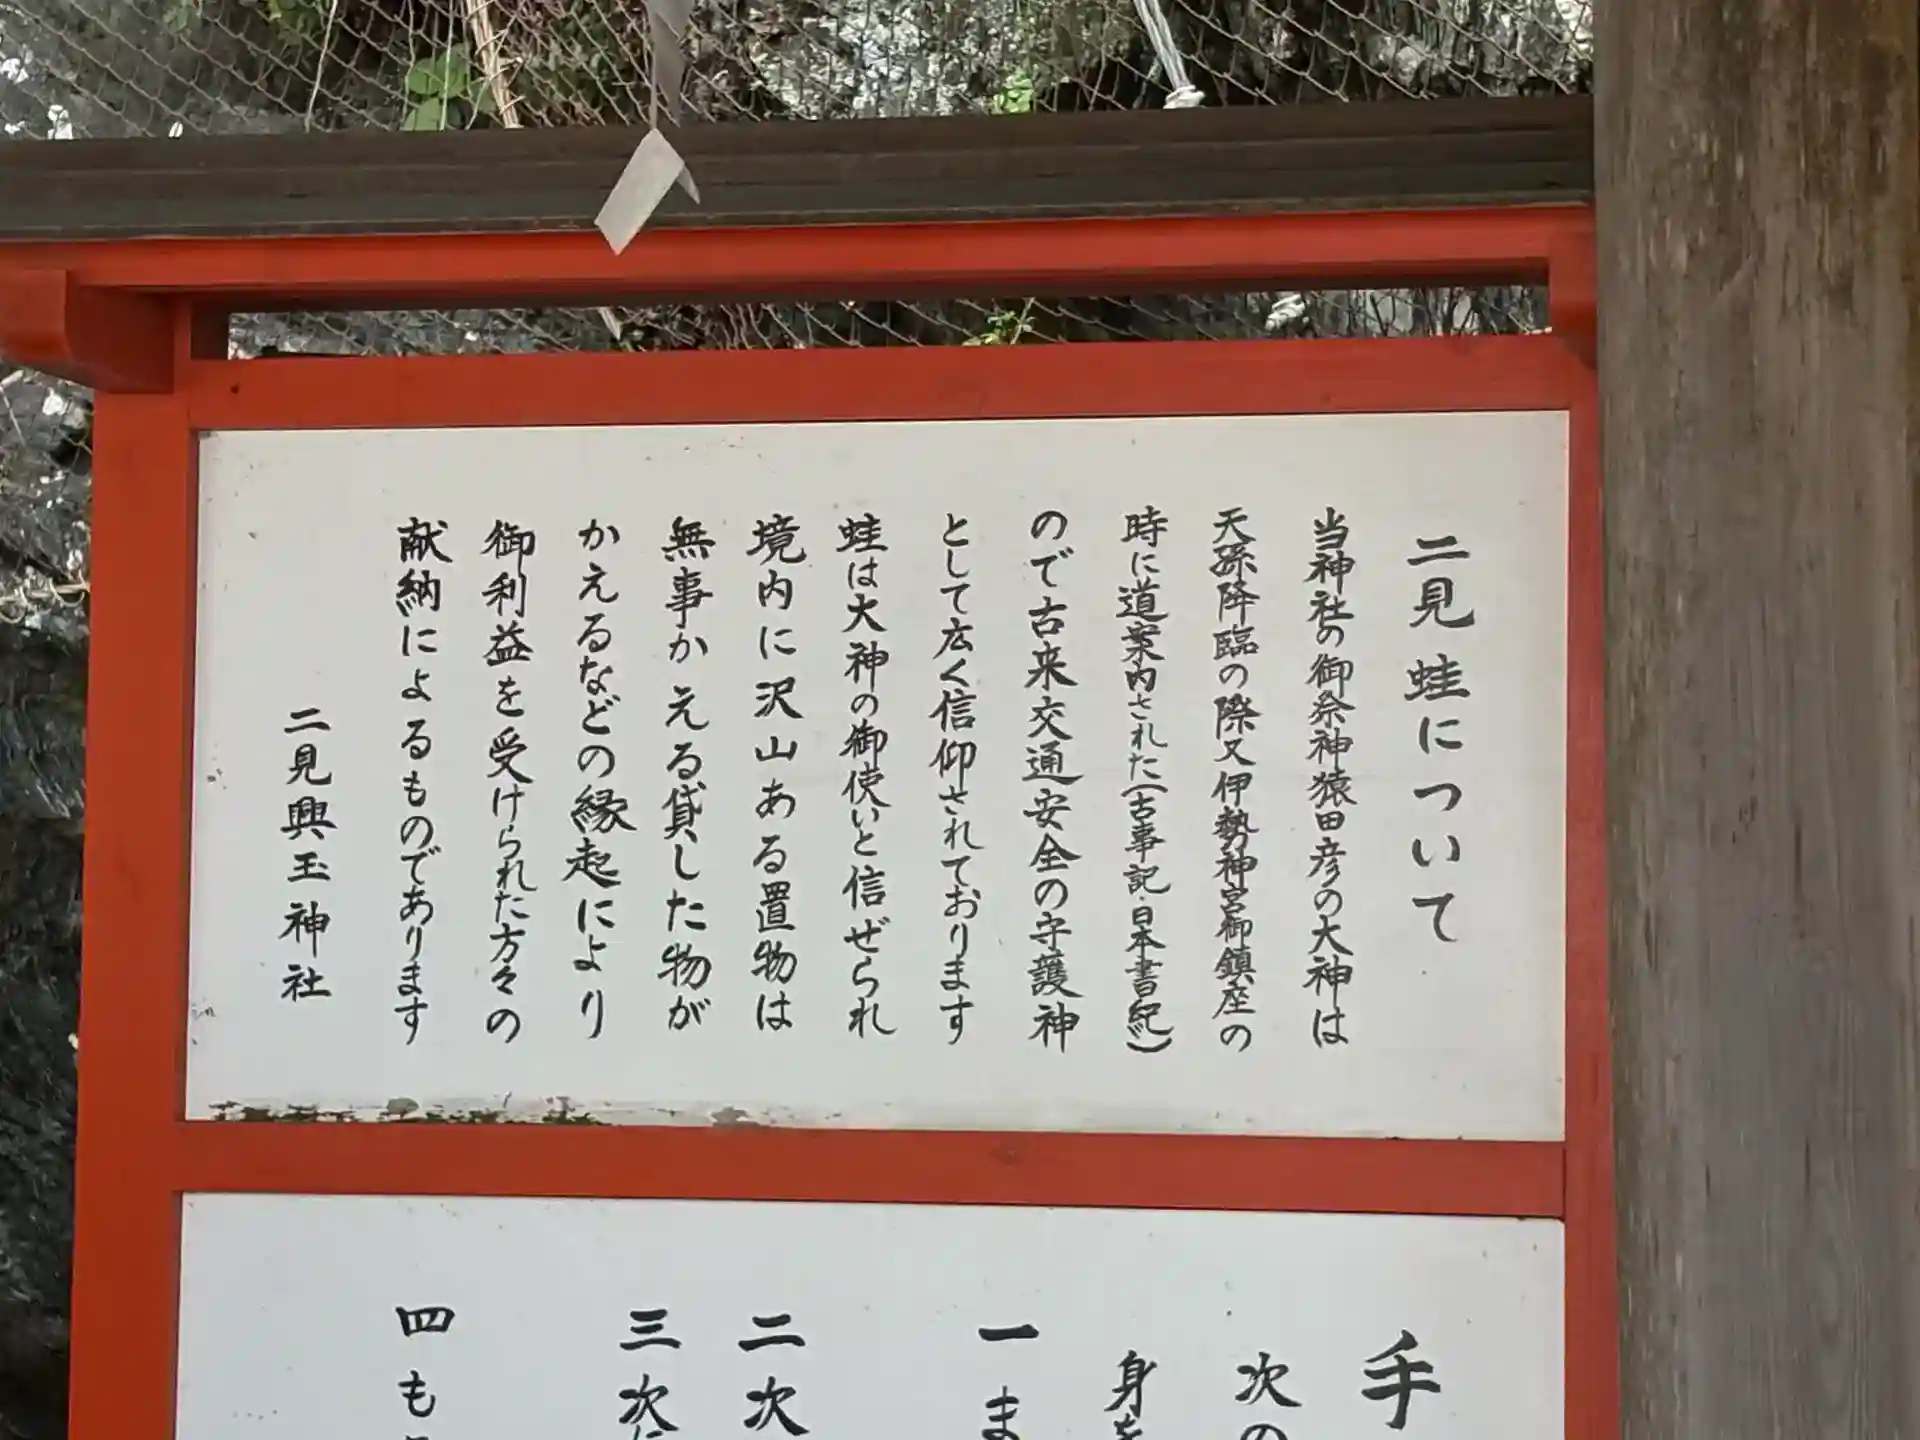 二見蛙について
当神社の御祭神猿田彦の大神は
天孫降臨の際又伊勢神宮御鎮座の
時に道案内された(古事記・日本書紀)
ので古来交通安全の守護神
として広く信仰されております
蛙は大神の御使いと信ぜられ
境内に沢山ある置物は
無事かえる貸した物が
かえるなどの縁起により
御利益を受けられた方々の
献納によるものであります
二見興玉神社
手
次の
身を
一ま
二次
三次に
四も